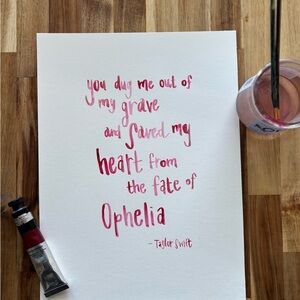 you dug me out of
my grave
and saved my
heart from
the fate of
Ophelia
- Taylor Swift